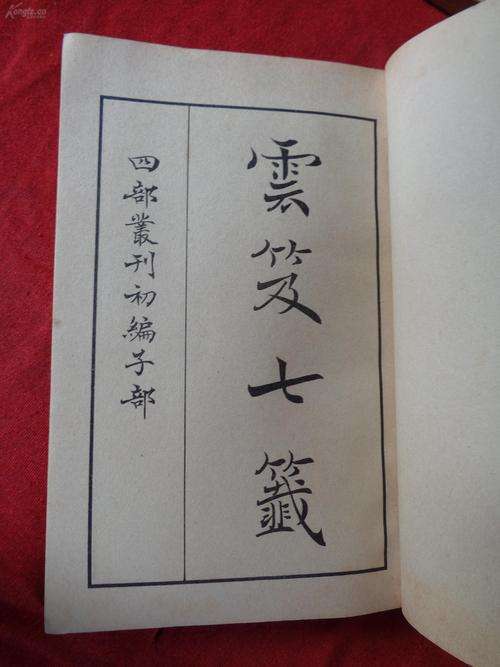 雲笈七籤
四部叢刊初編子部
Kongfz.cn